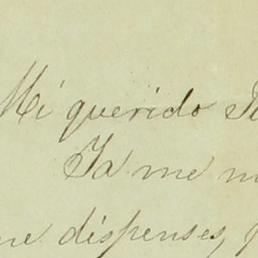 Mi querido
Ya me
me dispenses,